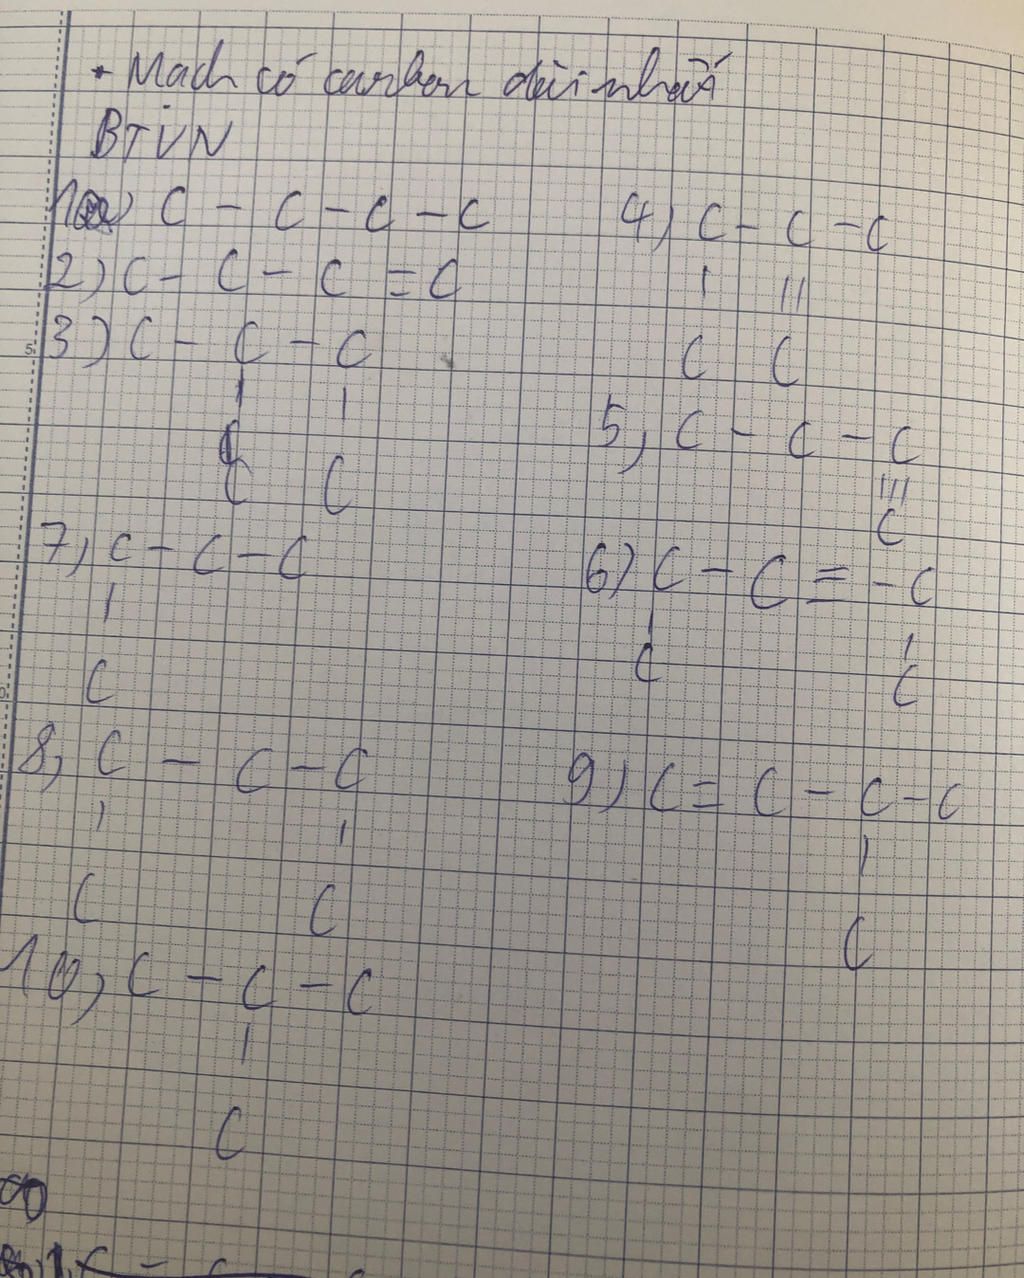 • Mạch có carbon dài nhất
BTVN
1) C - C - C - C
2) C - C - C = C
3) C - C - C
| |
C C
4) C - C - C
| ||
C C
5) C - C - C
|||
C
7) C - C - C
|
C
6) C - C = - C
| |
C C
8) C - C - C
| |
C C
9) C = C - C - C
|
C
10) C - C - C
|
C